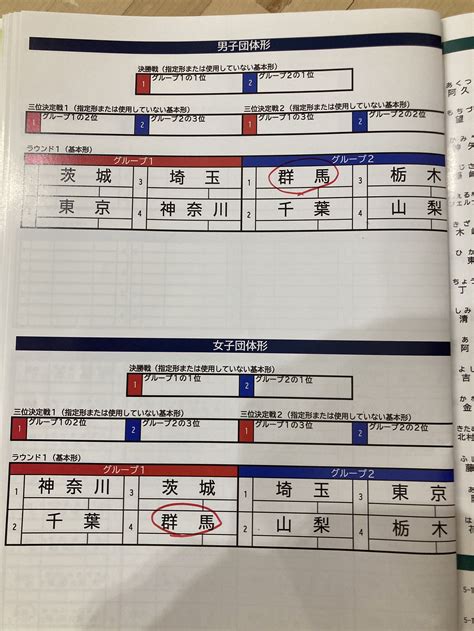 男子団体形
決勝戦(指定形または使用していない基本形)
1 グループ1の1位 2 グループ2の1位
三位決定戦1(指定形または使用していない基本形) 三位決定戦2(指定形または使用していない基本形)
1 グループ1の2位 2 グループ2の3位 1 グループ1の3位 2 グループ2の2位
ラウンド1(基本形)
グループ1 グループ2
茨城 3 埼玉 1 群馬 3 栃木
東京 4 神奈川 2 千葉 4 山梨
女子団体形
決勝戦(指定形または使用していない基本形)
1 グループ1の1位 2 グループ2の1位
三位決定戦1(指定形または使用していない基本形) 三位決定戦2(指定形または使用していない基本形)
1 グループ1の2位 2 グループ2の3位 1 グループ1の3位 2 グループ2の2位
ラウンド1(基本形)
グループ1 グループ2
1 神奈川 3 茨城 1 埼玉 3 東京
2 千葉 4 群馬 2 山梨 4 栃木